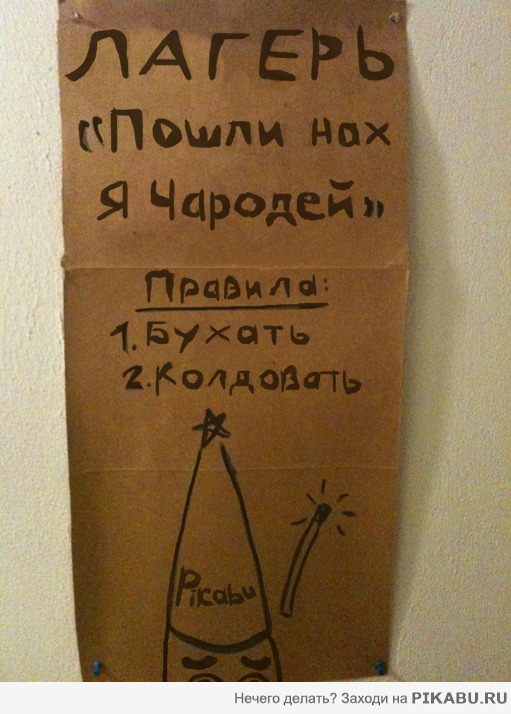 ЛАГЕРЬ
«Пошли нах
Я Чародей»
Правила:
1. Бухать
2. Колдовать
Pikabu
Нечего делать? Заходи на PIKABU.RU